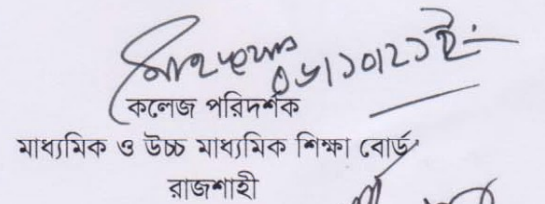 ০৬/১০/২১ইং
কলেজ পরিদর্শক
মাধ্যমিক ও উচ্চ মাধ্যমিক শিক্ষা বোর্ড
রাজশাহী